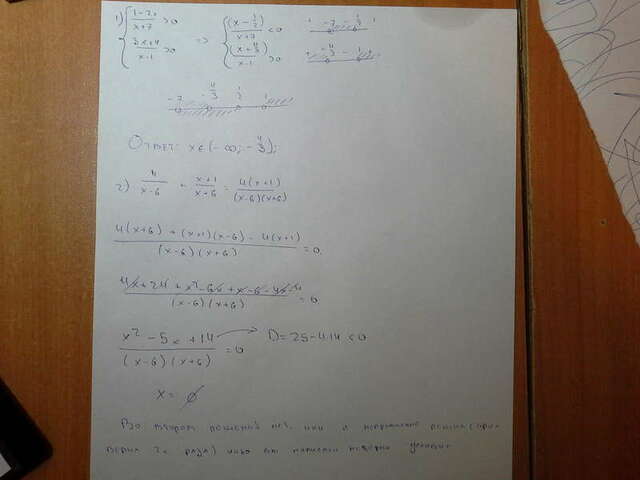 1) { (1-2x)/(x+7) > 0 => { (x-1/2)/(x+7) < 0   -7   1/2
{ (3x+4)/(x-1) > 0   { (x+4/3)/(x-1) > 0   -4/3   1
-7   -4/3   1/2   1
Ответ: x∈(-∞; -4/3);
2) 4/(x-6) + (x+1)/(x+6) = 4(x+1)/((x-6)(x+6))
(4(x+6) + (x+1)(x-6) - 4(x+1))/((x-6)(x+6)) = 0
(4x+24 + x²-6x+x-6-4x-4)/((x-6)(x+6)) = 0
(x²-5x+14)/((x-6)(x+6)) = 0   D=25-4·14<0
x = ∅
Во втором решений нет, или я неправильно решил(а
2 раза) либо вы написали условие